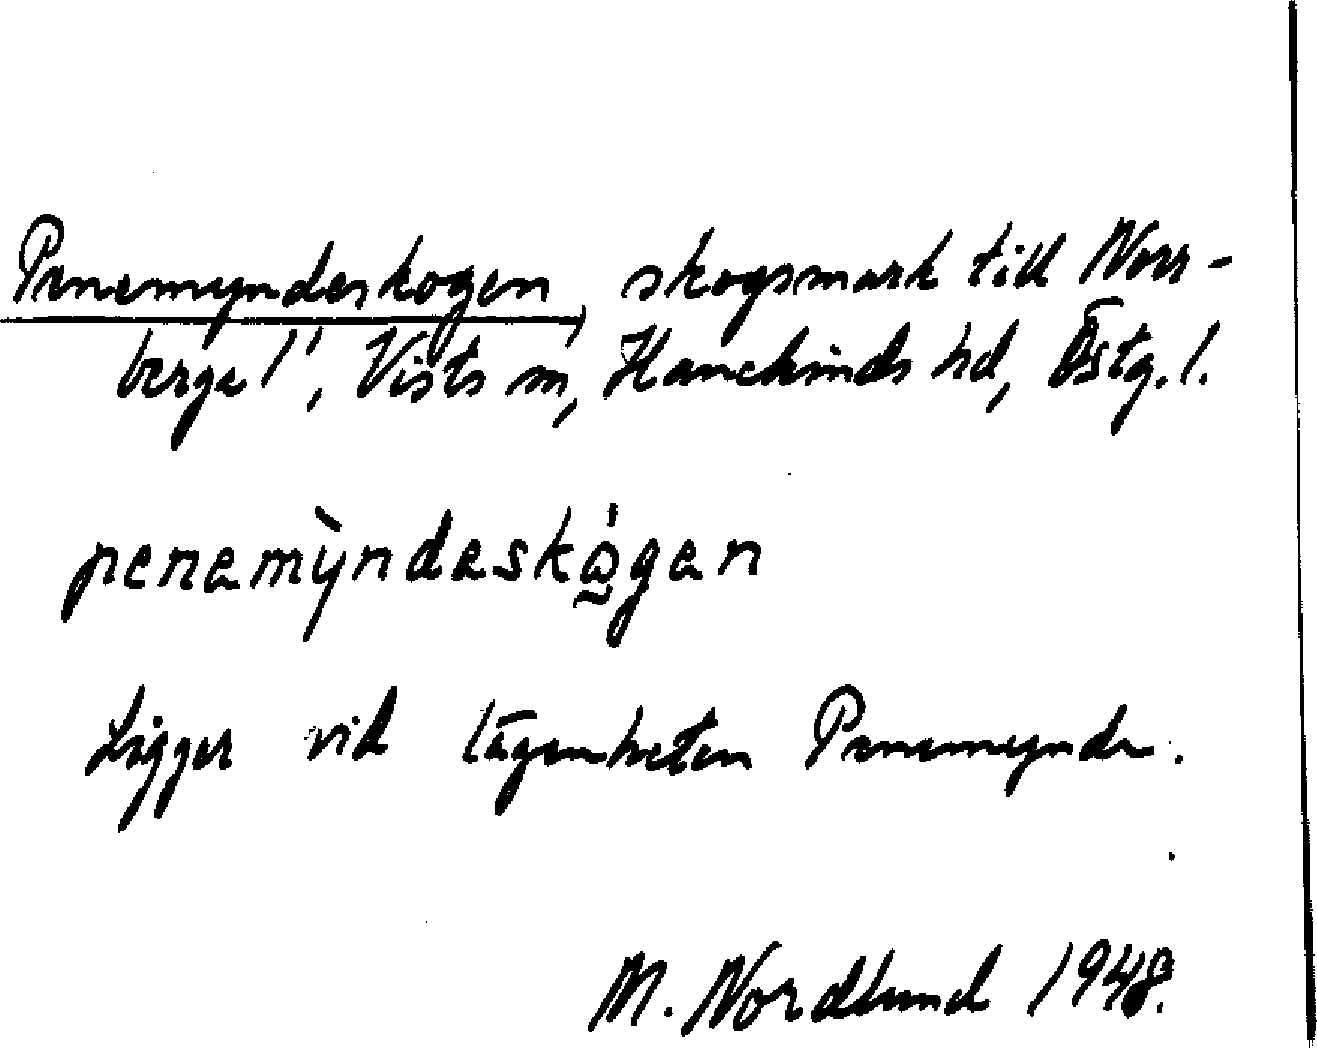 Penemyndeskogen, skogsmark till Norr-
berga 1¹, Vists sn, Hanekinds hd, Östg. l.
penamỳndaskǫ̀gan
Ligger vid lägenheten Penemynde.
M. Nordlund 1948.